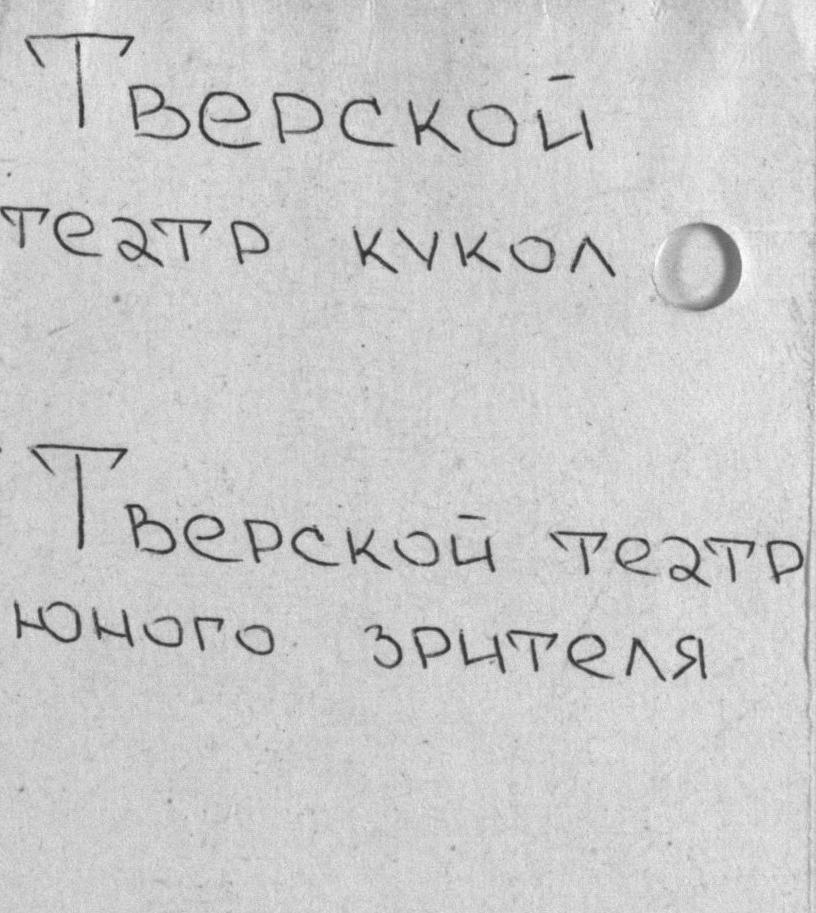 Тверской
театр кукол
Тверской театр
юного зрителя